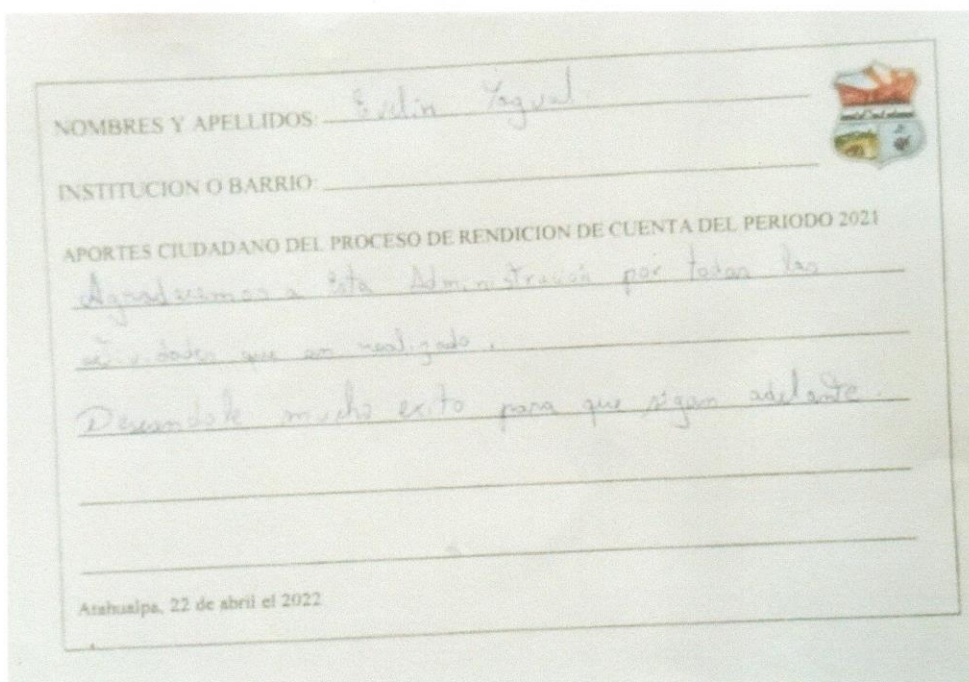 NOMBRES Y APELLIDOS: Evelin Yagual.
INSTITUCION O BARRIO:
APORTES CIUDADANO DEL PROCESO DE RENDICION DE CUENTA DEL PERIODO 2021
Agradecemos a esta Administración por todas las
actividades que an realizado.
Deseandole mucho exito para que sigam adelante.
Atahualpa, 22 de abril el 2022